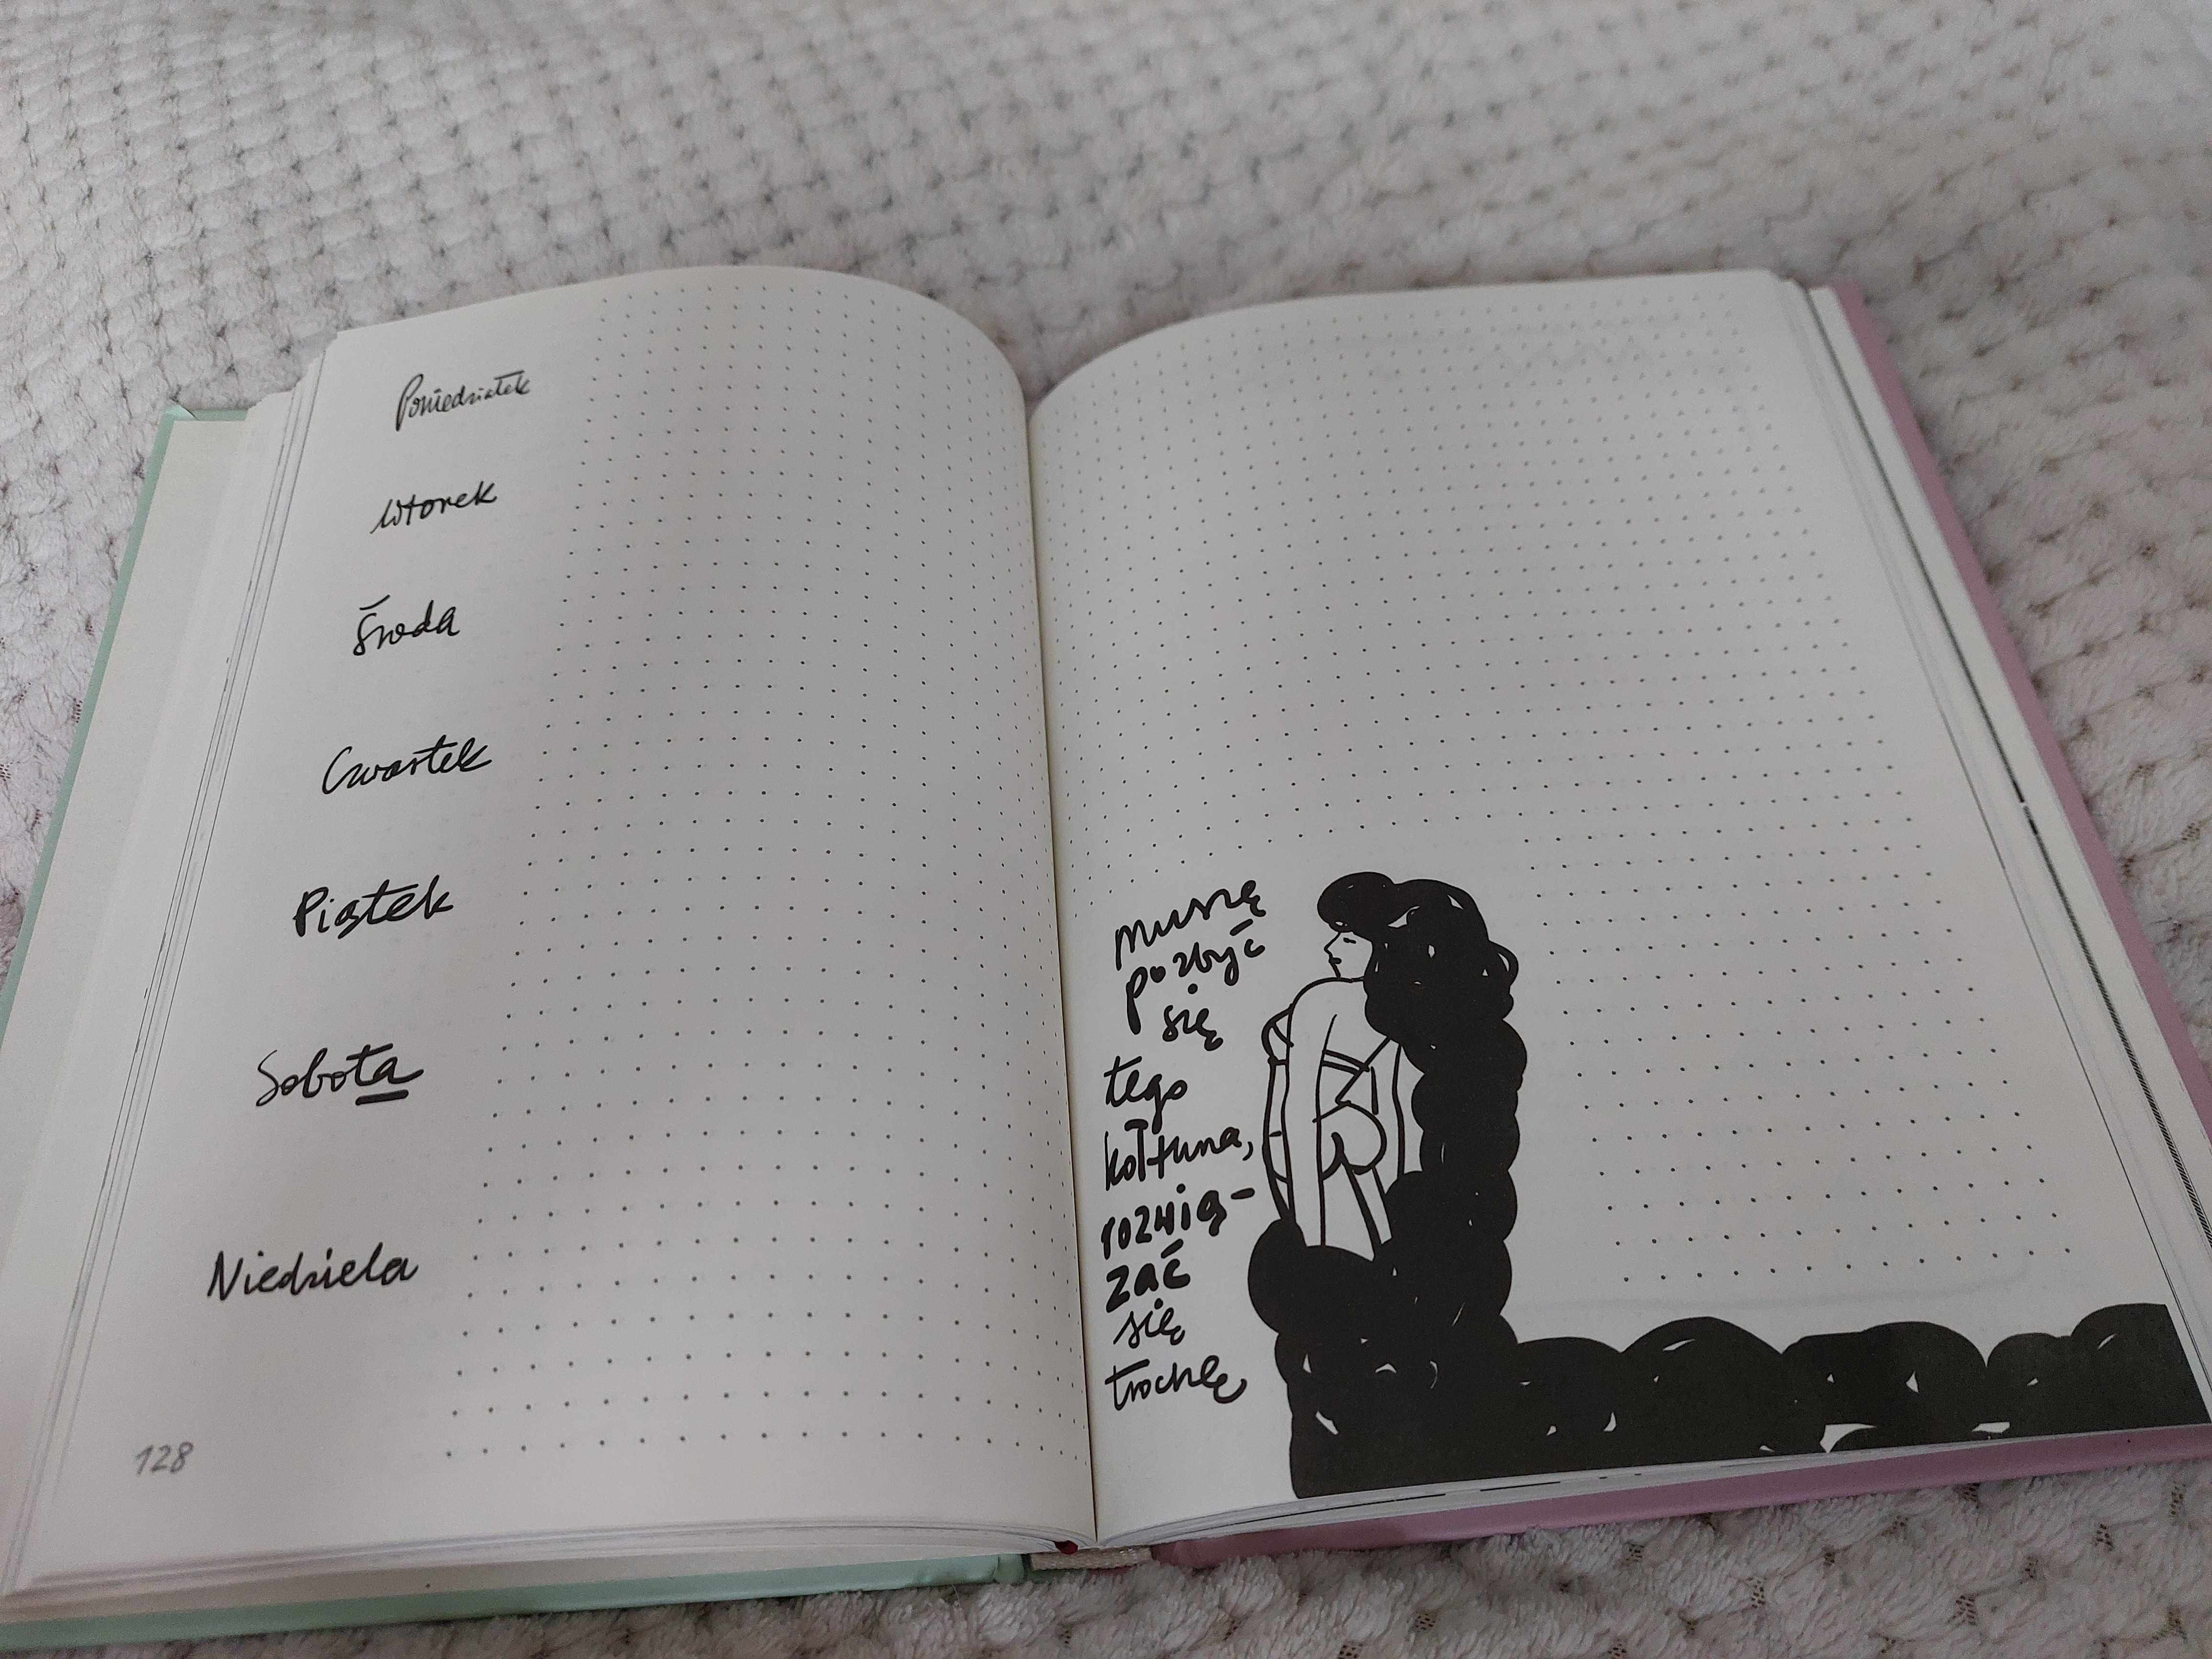 Poniedziałek
Wtorek
Środa
Czwartek
Piątek
Sobota
Niedziela
128
muszę
pozbyć
się
tego
kołtuna,
rozwią-
zać
się
trochę